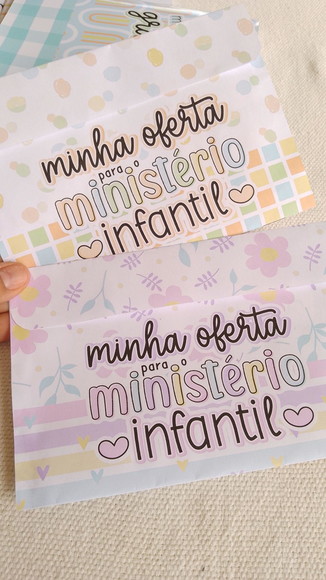 minha oferta
para o
ministério
infantil
minha oferta
para o
ministério
infantil